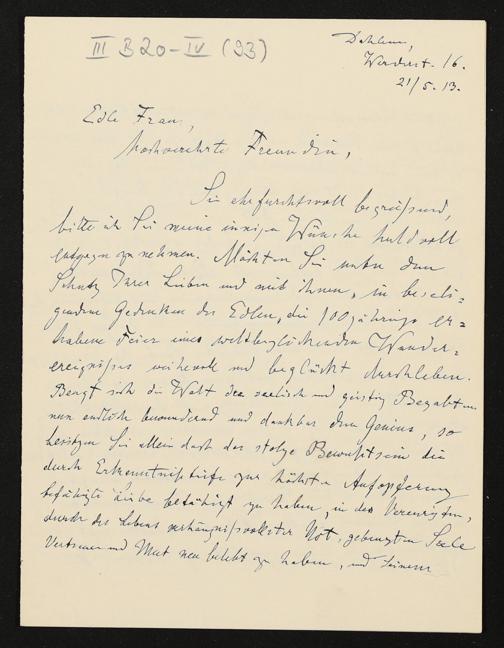 III B 20-IV (93)
Dahlem,
Werderstr. 16.
21/5.13.
Edle Frau,
hochverehrte Freundin,
Sie ehrfurchtsvoll begrüssend,
bitte ich Sie meine innigen Wünsche huldvoll
entgegen zu nehmen. Möchten Sie unter dem
Schutz Ihrer Lieben und mit ihnen, in beseli=
gendem Gedenken des Edlen, die 100jährige er=
habene Feier eines weltbeglückenden Wunder=
ereignisses weihevoll und beglückt durchleben.
Beugt sich die Welt der seelisch und geistig Begabten
nun endlich bewundernd und dankbar dem Genius, so
besitzen Sie allein doch das stolze Bewußtsein die
durch Erkenntnißtiefe zur höchsten Aufopferung
befähigte Liebe bethätigt zu haben, in der Vereinsamten,
durch des Lebens verhängnißvollster Not, gebeugten Seele
Vertrauen und Mut neu belebt zu haben, und seinem